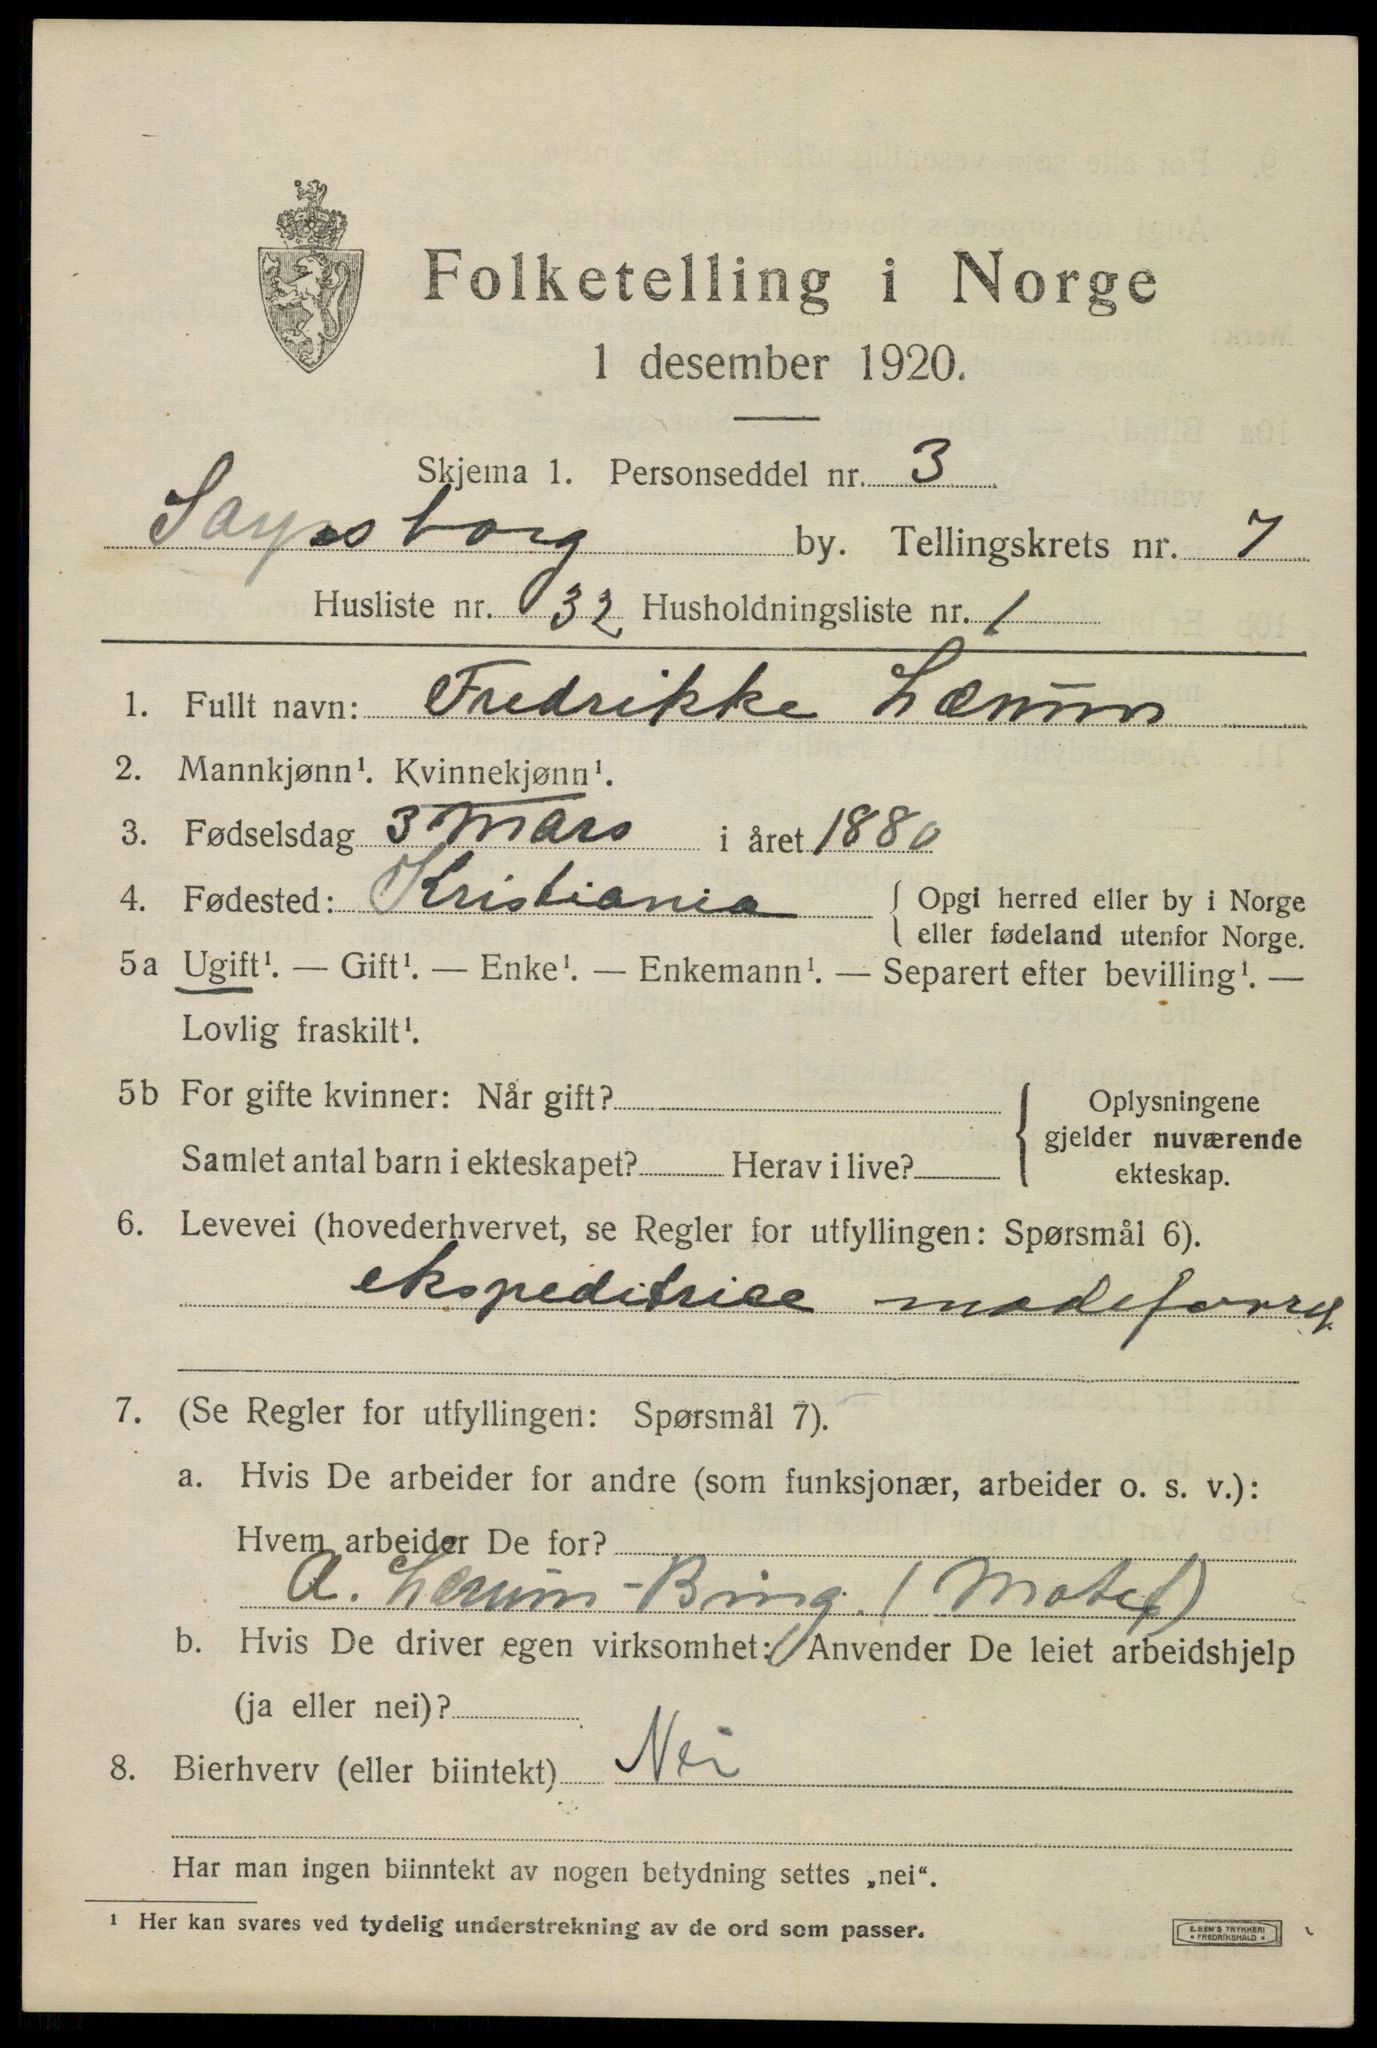 Folketelling i Norge
1 desember 1920.
Skjema 1. Personseddel nr. 3
Sarpsborg by. Tellingskrets nr. 7
Husliste nr. 32 Husholdningsliste nr. 1
1. Fullt navn: Fredrikke Lærum
2. Mannkjønn¹. Kvinnekjønn¹.
3. Fødselsdag 3 Mars i året 1880
4. Fødested: Kristiania { Opgi herred eller by i Norge
eller fødeland utenfor Norge.
5a Ugift¹. — Gift¹. — Enke¹. — Enkemann¹. — Separert efter bevilling¹. —
Lovlig fraskilt¹.
5b For gifte kvinner: Når gift?
Samlet antal barn i ekteskapet? Herav i live?
Oplysningene
gjelder nuværende
ekteskap.
6. Levevei (hovederhvervet, se Regler for utfyllingen: Spørsmål 6).
ekspeditrice modeforrg.
7. (Se Regler for utfyllingen: Spørsmål 7).
a. Hvis De arbeider for andre (som funksjonær, arbeider o. s. v.):
Hvem arbeider De for?
A. Lærum-Bing. (Motef)
b. Hvis De driver egen virksomhet: Anvender De leiet arbeidshjelp
(ja eller nei)?
8. Bierhverv (eller biintekt) Nei
Har man ingen biinntekt av nogen betydning settes „nei“.
¹ Her kan svares ved tydelig understrekning av de ord som passer.
E. SEM'S TRYKKERI
• FREDRIKSHALD •